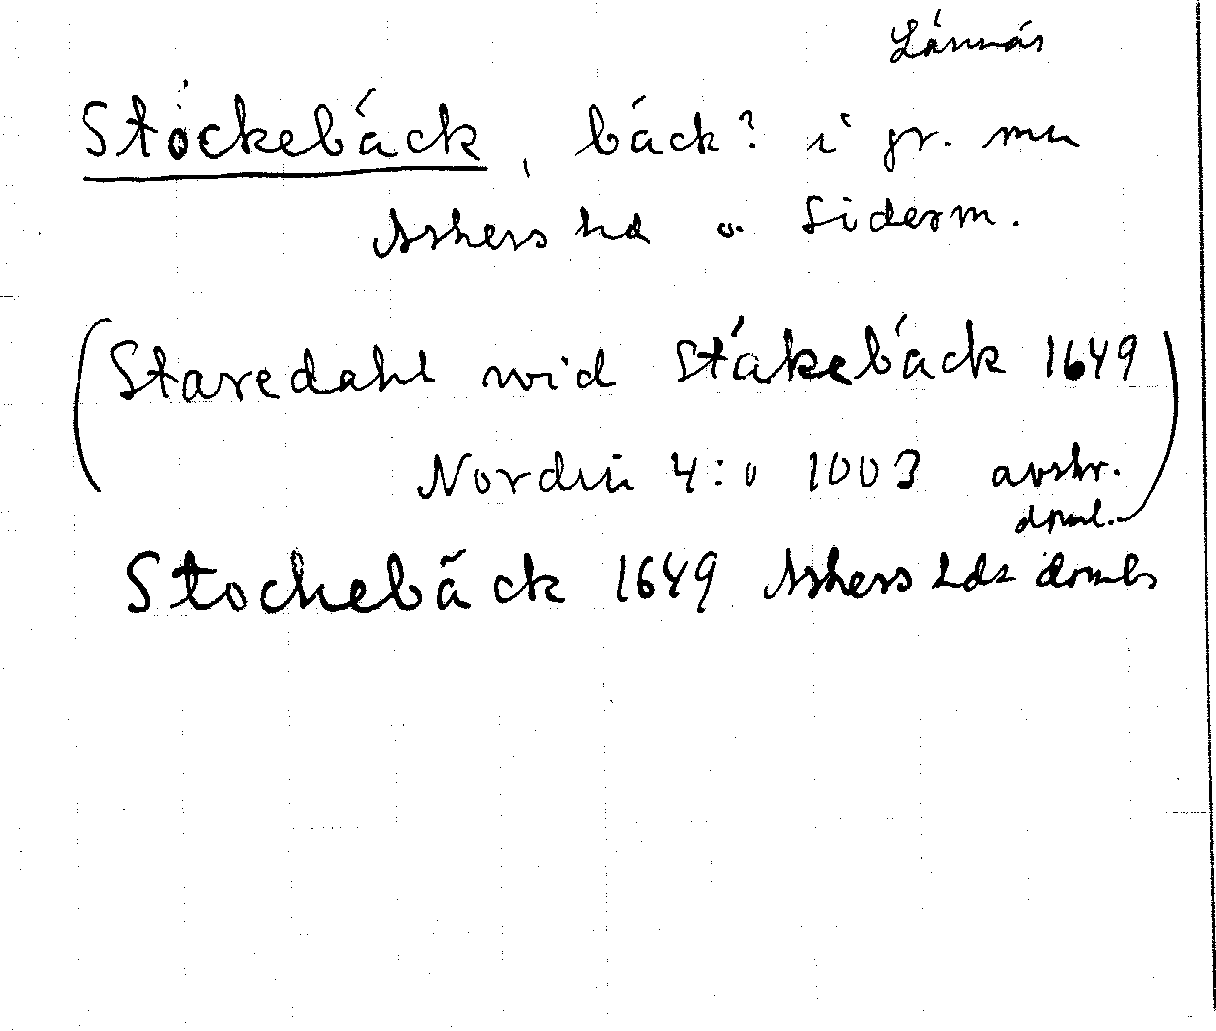 Lännäs
Stockebäck, bäck? i gr. m
Askers hd o Söderm.
(Staredahl wid Stäkebäck 1649
Nordin 4:o 1003 avskr.
domb.)
Stockebäck 1649 Askers hds domb